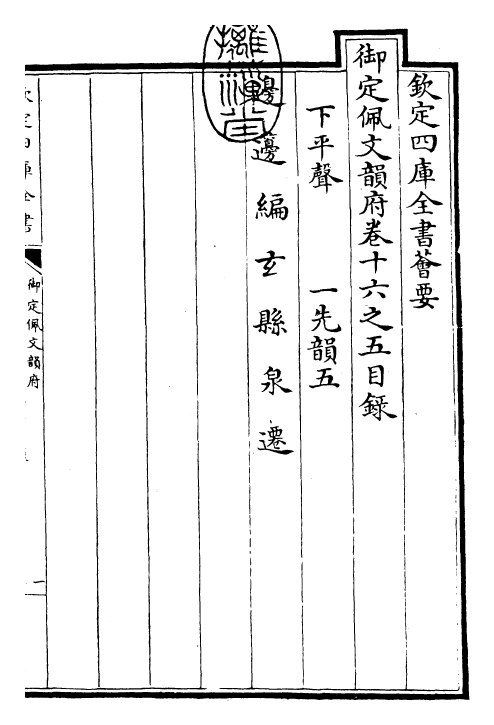 欽定四庫全書薈要
御定佩文韻府卷十六之五目錄
下平聲　一先韻五
邊 籩 編 玄 縣 泉 遷
欽定四庫全書
御定佩文韻府
一